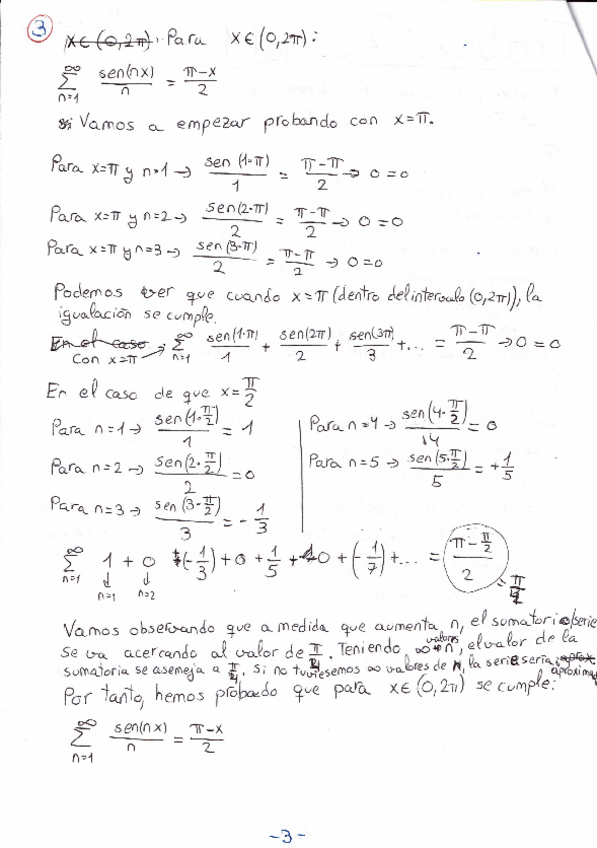 3 x∈(0,2π). Para x∈(0,2π):
∞∑n=1 sen(nx)/n = π-x/2
Vamos a empezar probando con x=π.
Para x=π y n=1 → sen(1·π)/1 = π-π/2 → 0=0
Para x=π y n=2 → sen(2·π)/2 = π-π/2 → 0=0
Para x=π y n=3 → sen(3·π)/2 = π-π/2 → 0=0
Podemos ver que cuando x=π (dentro del intervalo (0,2π)), la
igualación se cumple.
En el caso
Con x=π → ∞∑n=1 sen(1·π)/1 + sen(2π)/2 + sen(3π)/3 + ... = π-π/2 → 0=0
En el caso de que x=π/2
Para n=1 → sen(1·π/2)/1 = 1
Para n=2 → sen(2·π/2)/2 = 0
Para n=3 → sen(3·π/2)/3 = -1/3
Para n=4 → sen(4·π/2)/4 = 0
Para n=5 → sen(5·π/2)/5 = +1/5
∞∑n=1 1 + 0 + (-1/3) + 0 + 1/5 + 0 + (-1/7) + ... = π-π/2/2 = π/4
n=1 n=2
Vamos observando que a medida que aumenta n, el sumatorio/serie
se va acercando al valor de π/4. Teniendo ∞ valores "n", el valor de la
sumatoria se asemeja a π/4. Si no tuviesemos ∞ valores de n, la serie sería aproxima
Por tanto, hemos probado que para x∈(0,2π) se cumple:
∞∑n=1 sen(nx)/n = π-x/2
-3-